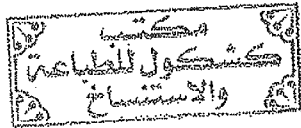 مكتب
كشكول للطباعة
والاستنساخ